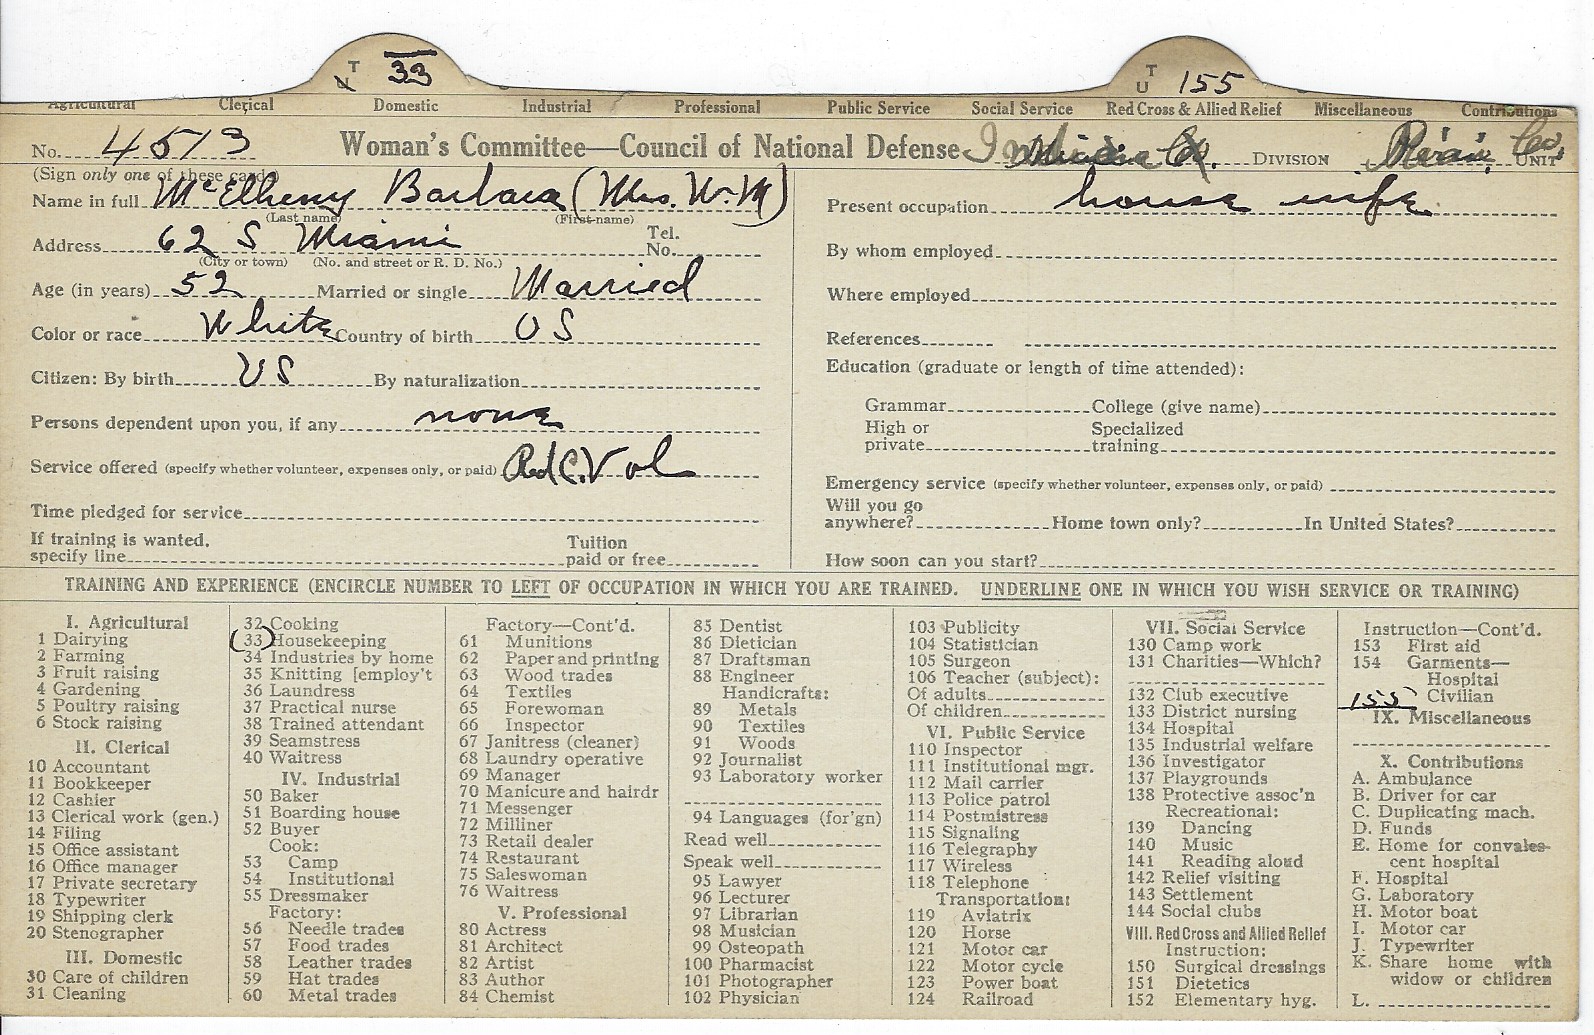 T
U 33
T
U 155
Agricultural Clerical Domestic Industrial Professional Public Service Social Service Red Cross & Allied Relief Miscellaneous Contributions
No. 4513 Woman's Committee—Council of National Defense Indiana DIVISION Co. UNIT
(Sign only one of these cards)
Name in full McElheny Barbara (Mrs. W. M)
(Last name) (First name)
Address 62 S Miami Tel. No.
(City or town) (No. and street or R. D. No.)
Age (in years) 52 Married or single Married
Color or race White Country of birth US
Citizen: By birth US By naturalization
Persons dependent upon you, if any none
Service offered (specify whether volunteer, expenses only, or paid) Red C. Vol
Time pledged for service
If training is wanted, specify line Tuition paid or free
Present occupation house wife
By whom employed
Where employed
References
Education (graduate or length of time attended):
Grammar College (give name)
High or private Specialized training
Emergency service (specify whether volunteer, expenses only, or paid)
Will you go anywhere? Home town only? In United States?
How soon can you start?
TRAINING AND EXPERIENCE (ENCIRCLE NUMBER TO LEFT OF OCCUPATION IN WHICH YOU ARE TRAINED. UNDERLINE ONE IN WHICH YOU WISH SERVICE OR TRAINING)
I. Agricultural
1 Dairying
2 Farming
3 Fruit raising
4 Gardening
5 Poultry raising
6 Stock raising
II. Clerical
10 Accountant
11 Bookkeeper
12 Cashier
13 Clerical work (gen.)
14 Filing
15 Office assistant
16 Office manager
17 Private secretary
18 Typewriter
19 Shipping clerk
20 Stenographer
III. Domestic
30 Care of children
31 Cleaning
32 Cooking
(33) Housekeeping
34 Industries by home
35 Knitting [employ't
36 Laundress
37 Practical nurse
38 Trained attendant
39 Seamstress
40 Waitress
IV. Industrial
50 Baker
51 Boarding house
52 Buyer
Cook:
53 Camp
54 Institutional
55 Dressmaker
Factory:
56 Needle trades
57 Food trades
58 Leather trades
59 Hat trades
60 Metal trades
Factory—Cont'd.
61 Munitions
62 Paper and printing
63 Wood trades
64 Textiles
65 Forewoman
66 Inspector
67 Janitress (cleaner)
68 Laundry operative
69 Manager
70 Manicure and hairdr
71 Messenger
72 Milliner
73 Retail dealer
74 Restaurant
75 Saleswoman
76 Waitress
V. Professional
80 Actress
81 Architect
82 Artist
83 Author
84 Chemist
85 Dentist
86 Dietician
87 Draftsman
88 Engineer
Handicrafts:
89 Metals
90 Textiles
91 Woods
92 Journalist
93 Laboratory worker
94 Languages (for'gn)
Read well
Speak well
95 Lawyer
96 Lecturer
97 Librarian
98 Musician
99 Osteopath
100 Pharmacist
101 Photographer
102 Physician
103 Publicity
104 Statistician
105 Surgeon
106 Teacher (subject):
Of adults
Of children
VI. Public Service
110 Inspector
111 Institutional mgr.
112 Mail carrier
113 Police patrol
114 Postmistress
115 Signaling
116 Telegraphy
117 Wireless
118 Telephone
Transportation:
119 Aviatrix
120 Horse
121 Motor car
122 Motor cycle
123 Power boat
124 Railroad
VII. Social Service
130 Camp work
131 Charities—Which?
132 Club executive
133 District nursing
134 Hospital
135 Industrial welfare
136 Investigator
137 Playgrounds
138 Protective assoc'n
Recreational:
139 Dancing
140 Music
141 Reading aloud
142 Relief visiting
143 Settlement
144 Social clubs
VIII. Red Cross and Allied Relief
Instruction:
150 Surgical dressings
151 Dietetics
152 Elementary hyg.
Instruction—Cont'd.
153 First aid
154 Garments—
Hospital
155 Civilian
IX. Miscellaneous
X. Contributions
A. Ambulance
B. Driver for car
C. Duplicating mach.
D. Funds
E. Home for convales-
cent hospital
F. Hospital
G. Laboratory
H. Motor boat
I. Motor car
J. Typewriter
K. Share home with
widow or children
L.